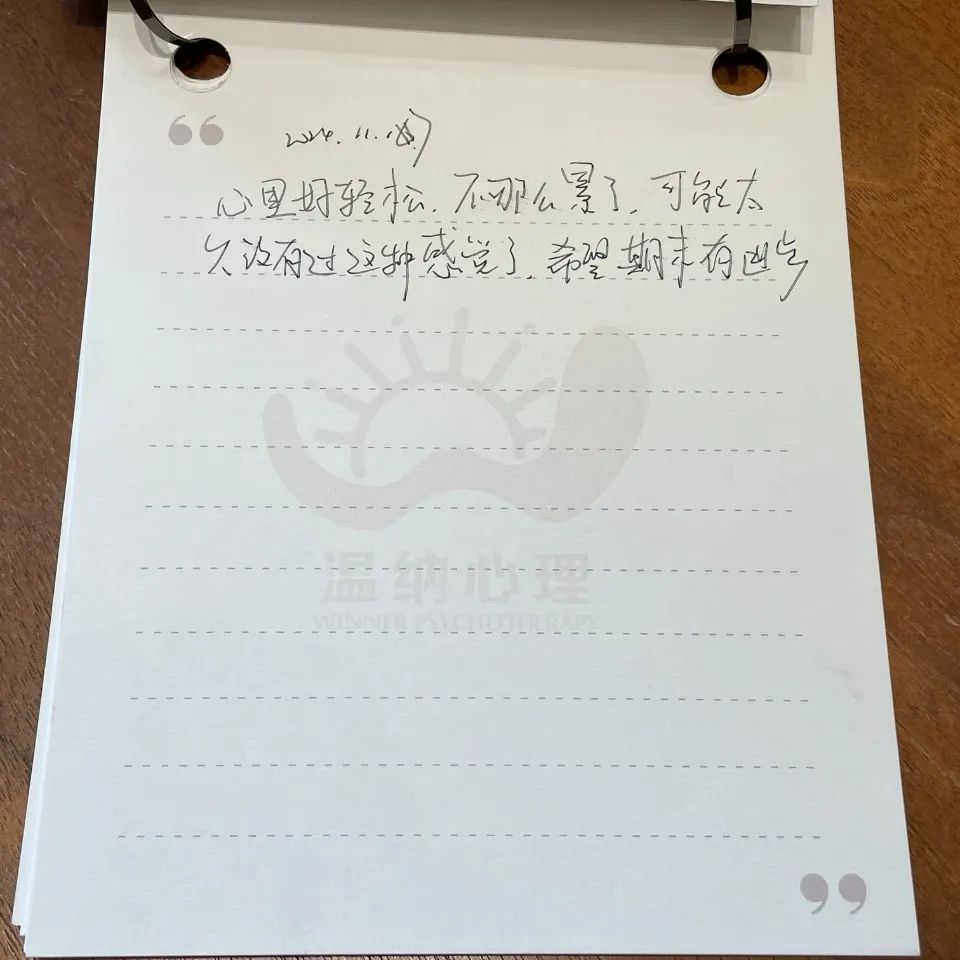 “
2024.11.
心里好轻松.不那么累了.可能太
久没有过这种感觉了.希望期末有进步
温纳心理
WINNER PSYCHOTHERAPY
”